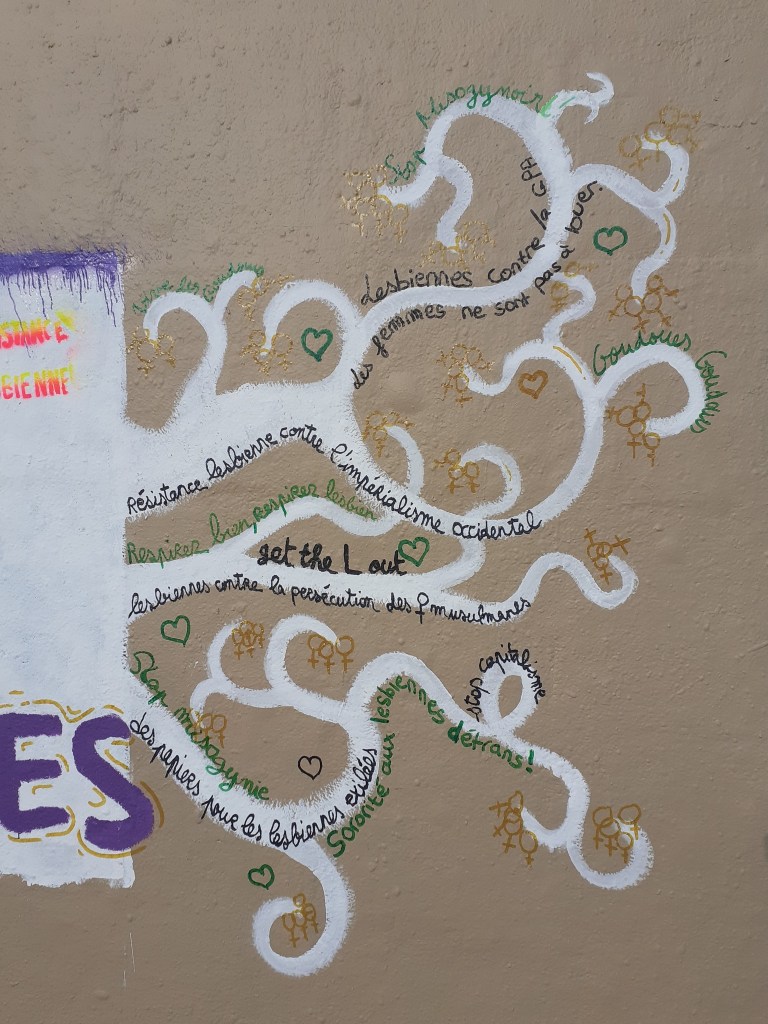 Stop Misogynoire!
Lesbiennes contre la GPA
les femmes ne sont pas à louer!
les Goudous
Goudoues Goudous
STANCE
BIENNE!
Résistance lesbienne contre l'impérialisme occidental
Respirer bien, respirer lesbien
get the L out
lesbiennes contre la persécution des f musulmanes
Stop misogynie
des papiers pour les lesbiennes exilées
Sororité aux lesbiennes détrans!
stop capitalisme
ES